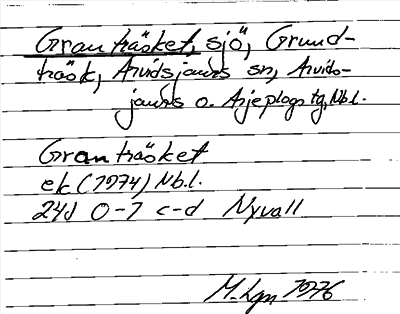 Granträsket, sjö, Grund-
träsk, Arvidsjaurs sn, Arvids-
jaurs o. Arjeplogs tg, Nbl.
Granträsket
ek (1974) Nb.l.
24J 0-1 c-d Nyvall
M. Lgn 1976